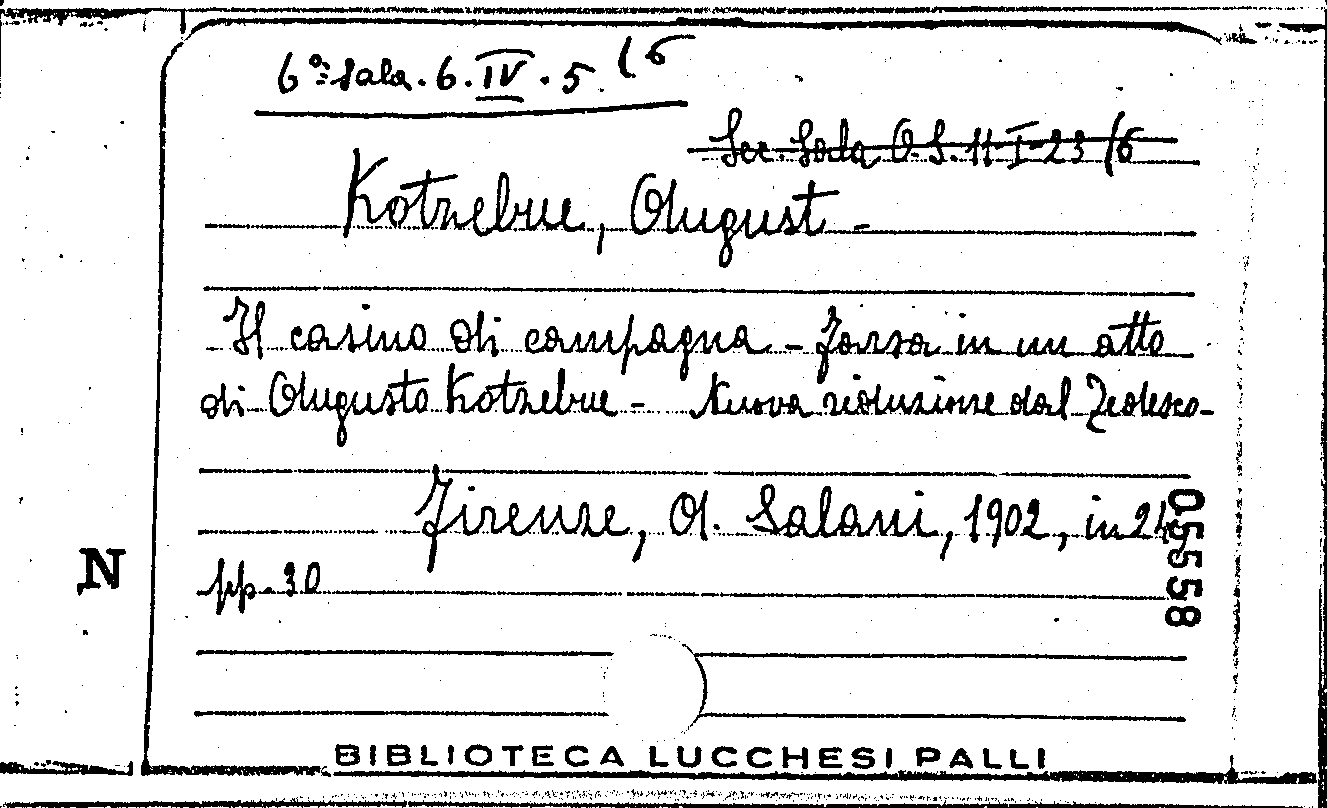 6ª Sala. 6. IV. 5. (6
Sec. Sala O. S. 11-I-23 (6
Kotzebue, August -
Il casino di campagna - farsa in un atto
di Augusto Kotzebue - Nuova riduzione dal Tedesco -
Firenze, A. Salani, 1902, in 24
pp. 30
05558
N
BIBLIOTECA LUCCHESI PALLI